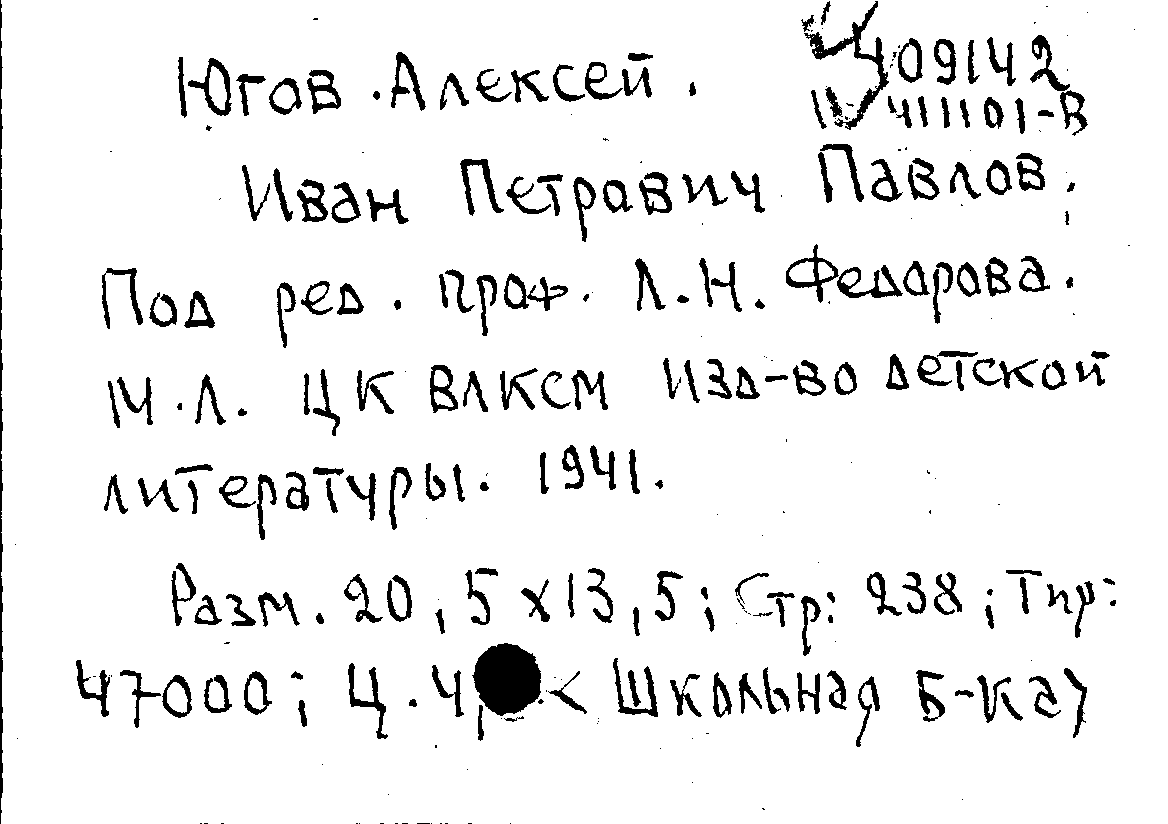 Югов. Алексей.
409142
411101-В
Иван Петрович Павлов.
Под ред. проф. Л. Н. Федорова.
М.-Л. ЦК ВЛКСМ Изд-во детской
литературы. 1941.
Разм. 20,5x13,5; Стр: 238; Тир:
47000; Ц. 4, < Школьная Б-ка>